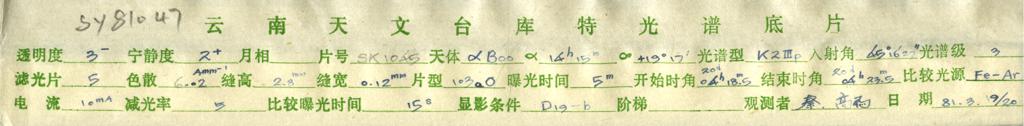 SY81047 云南天文台库特光谱底片
透明度 3⁻ 宁静度 2⁺ 月相 片号 SK1045 天体 αBoo α 14ʰ15ᵐ δ +19°17′ 光谱型 K2Ⅲp 入射角 65°16′ 光谱级 3
滤光片 5 色散 6.02 Åmm⁻¹ 缝高 2.8ᵐᵐ 缝宽 0.12ᵐᵐ 片型 103aO 曝光时间 5ᵐ 开始时角 04ʰ18.5ᵐ 结束时角 04ʰ23.5ᵐ 比较光源 Fe-Ar
电流 10mA 减光率 5 比较曝光时间 15ˢ 显影条件 D19-b 阶梯 观测者 秦 日期 81.3.19/20